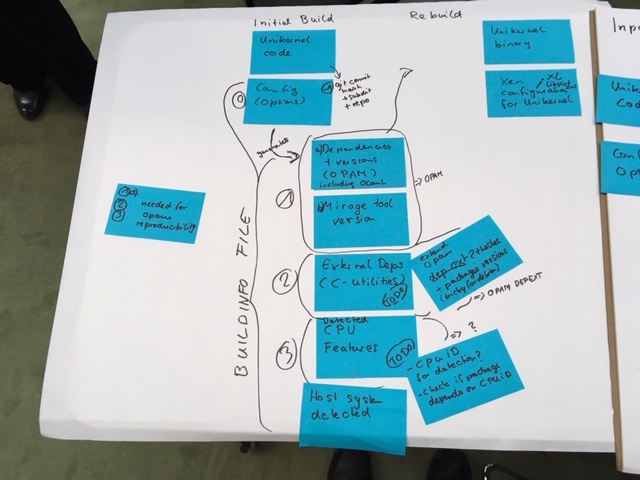 Initial Build
Rebuild
Unikernel
code
Unikernel
binary
Inpu
0
Config
(Options)
git commit
hash
+ subdir
+ repo
Xen
configuration
for Unikernel
XL
Unike
Cod
Con
(Op
generates
BUILDINFO FILE
1
a) Dependencies
+ versions
(OPAM)
including OCaml
b) Mirage tool
version
=> OPAM
1a)
2
3
needed for
opam
reproducibility
2
External Deps
(C-utilities)
TODO
extend
opam
depext? + hashes
+ packages versions
(tricky for debian)
=> OPAM DEPEXT
3
Detected
CPU
Features
TODO
=> ?
- CPUiD
for detection?
- Check if package
depends on CPUiD
Host system
detected